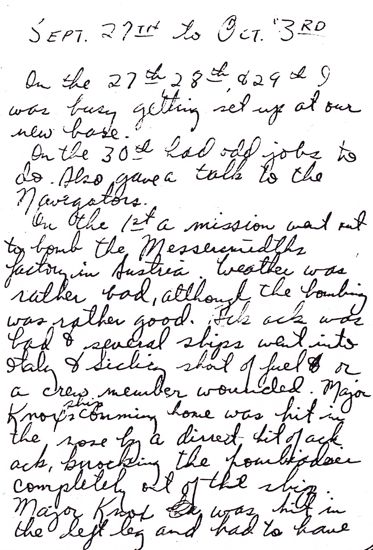 SEPT. 27TH to OCT. 3RD
On the 27th, 28th, & 29th I
was busy getting set up at our
new base.
On the 30th had odd jobs to
do. Also gave a talk to the
Navigators.
On the 1st a mission went out
to bomb the Messersmidths
factory in Austria. Weather was
rather bad, although the bombing
was rather good. Ack ack was
bad & several ships went into
Italy & Sicily short of fuel & or
a crew member wounded. Major
Knox's ship coming home was hit in
the nose by a direct hit of ack
ack, knocking the bombardier
completely out of the ship
Major Knox was hit in
the left leg and had to have